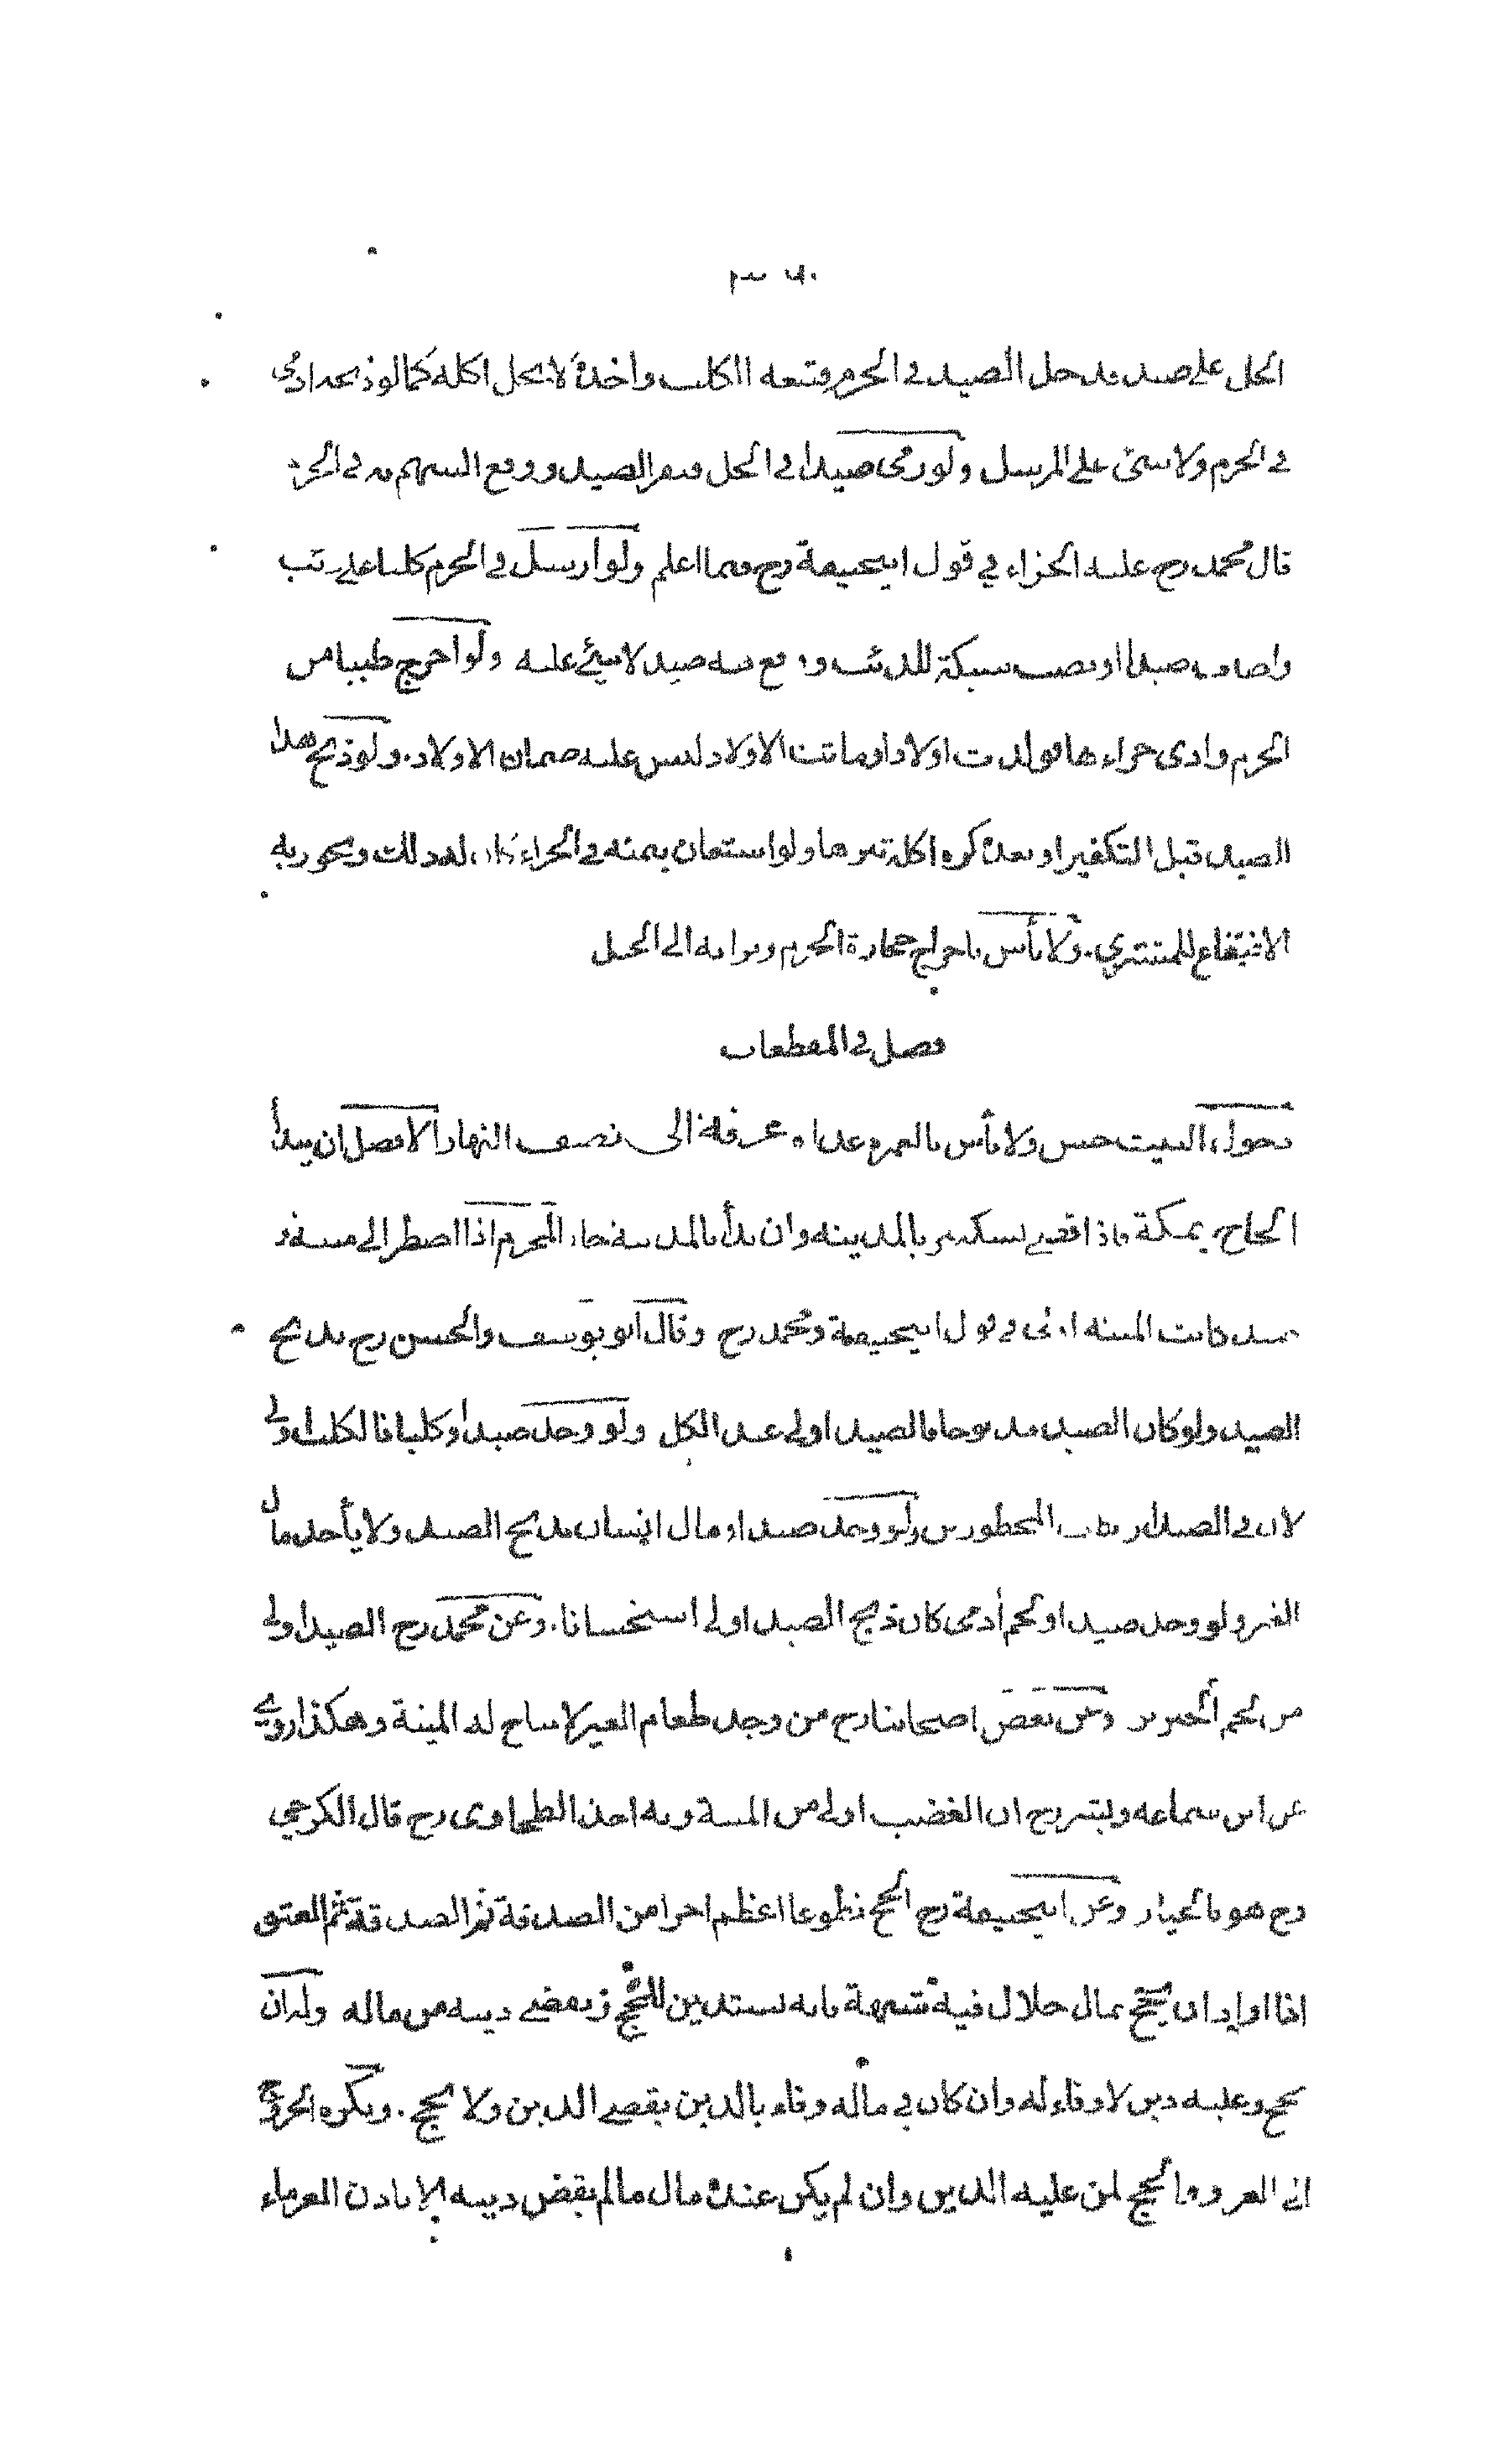 الحل على صيد فدخل الصيد في الحرم فتبعه الكلب واخذه لا يحل اكله كما لو ذبحه ادمى
في الحرم ولا شئ على المرسل ولو رمى صيدا في الحل فنفر الصيد ووقع السهم به في الحرم
قال محمد رح عليه الجزاء في قول ابيحنيفة رح فيما اعلم ولو ارسل في الحرم كلبا على ذئب
واصاب صيدا او نصب شبكة للذئب ووقع فيه صيد لا شئ عليه ولو اخرج ظبيا من
الحرم وادى جزاءها فولدت اولادا وماتت الاولاد ليس عليه ضمان الاولاد. ولو ذبح هذا
الصيد قبل التكفير او بعده كره اكله تنزها ولو استعان بثمنه في الجزاء كان له ذلك ويجوز به
الانتفاع للمشتري. ولا بأس باخراج حجارة الحرم وترابه الى الحل
فصل في المقطعات
دخول البيت حسن ولا بأس بالعمرة غداة عرفة الى نصف النهار الافضل ان يبدأ
الحاج بمكة فاذا قضى نسكه مر بالمدينة وان بدأ بالمدينة جاز المحرم اذا اضطر الى ميتة و
صيد كانت الميتة اولى في قول ابيحنيفة ومحمد رح وقال ابو يوسف والحسن رح يذبح
الصيد ولو كان الصيد مذبوحا فالصيد اولى عند الكل ولو وجد صيدا وكلبا فالكلب اولى
لان في الصيد ارتكاب المحظورين ولو وجد صيدا ومال انسان يذبح الصيد ولا يأخذ مال
الغير ولو وجد صيدا او لحم أدمى كان ذبح الصيد اولى استحسانا. وعن محمد رح الصيد اولى
من لحم الخنزير وعن بعض اصحابنا رح من وجد طعام الغير لا يباح له الميتة وهكذا روى
عن ابن سماعه وبشر رح ان الغضب اولى من الميتة وبه اخذ الطحاوى رح قال الكرخي
رح هو بالخيار وعن ابيحنيفة رح الحج تطوعا اعظم اجرا من الصدقة ثم الصدقة ثم العتق
اذا اراد ان يحج بمال حلال فيه شبهة فانه يستدين للحج ويقضى دينه من ماله ولو ان
يحج وعليه دين لا وفاء له وان كان في ماله وفاء بالدين يقضى الدين ولا يحج. ويكره الخروج
الى الغزو والحج لمن عليه الدين وان لم يكن عنده مال مالم يقض دينه الا باذن الغرماء